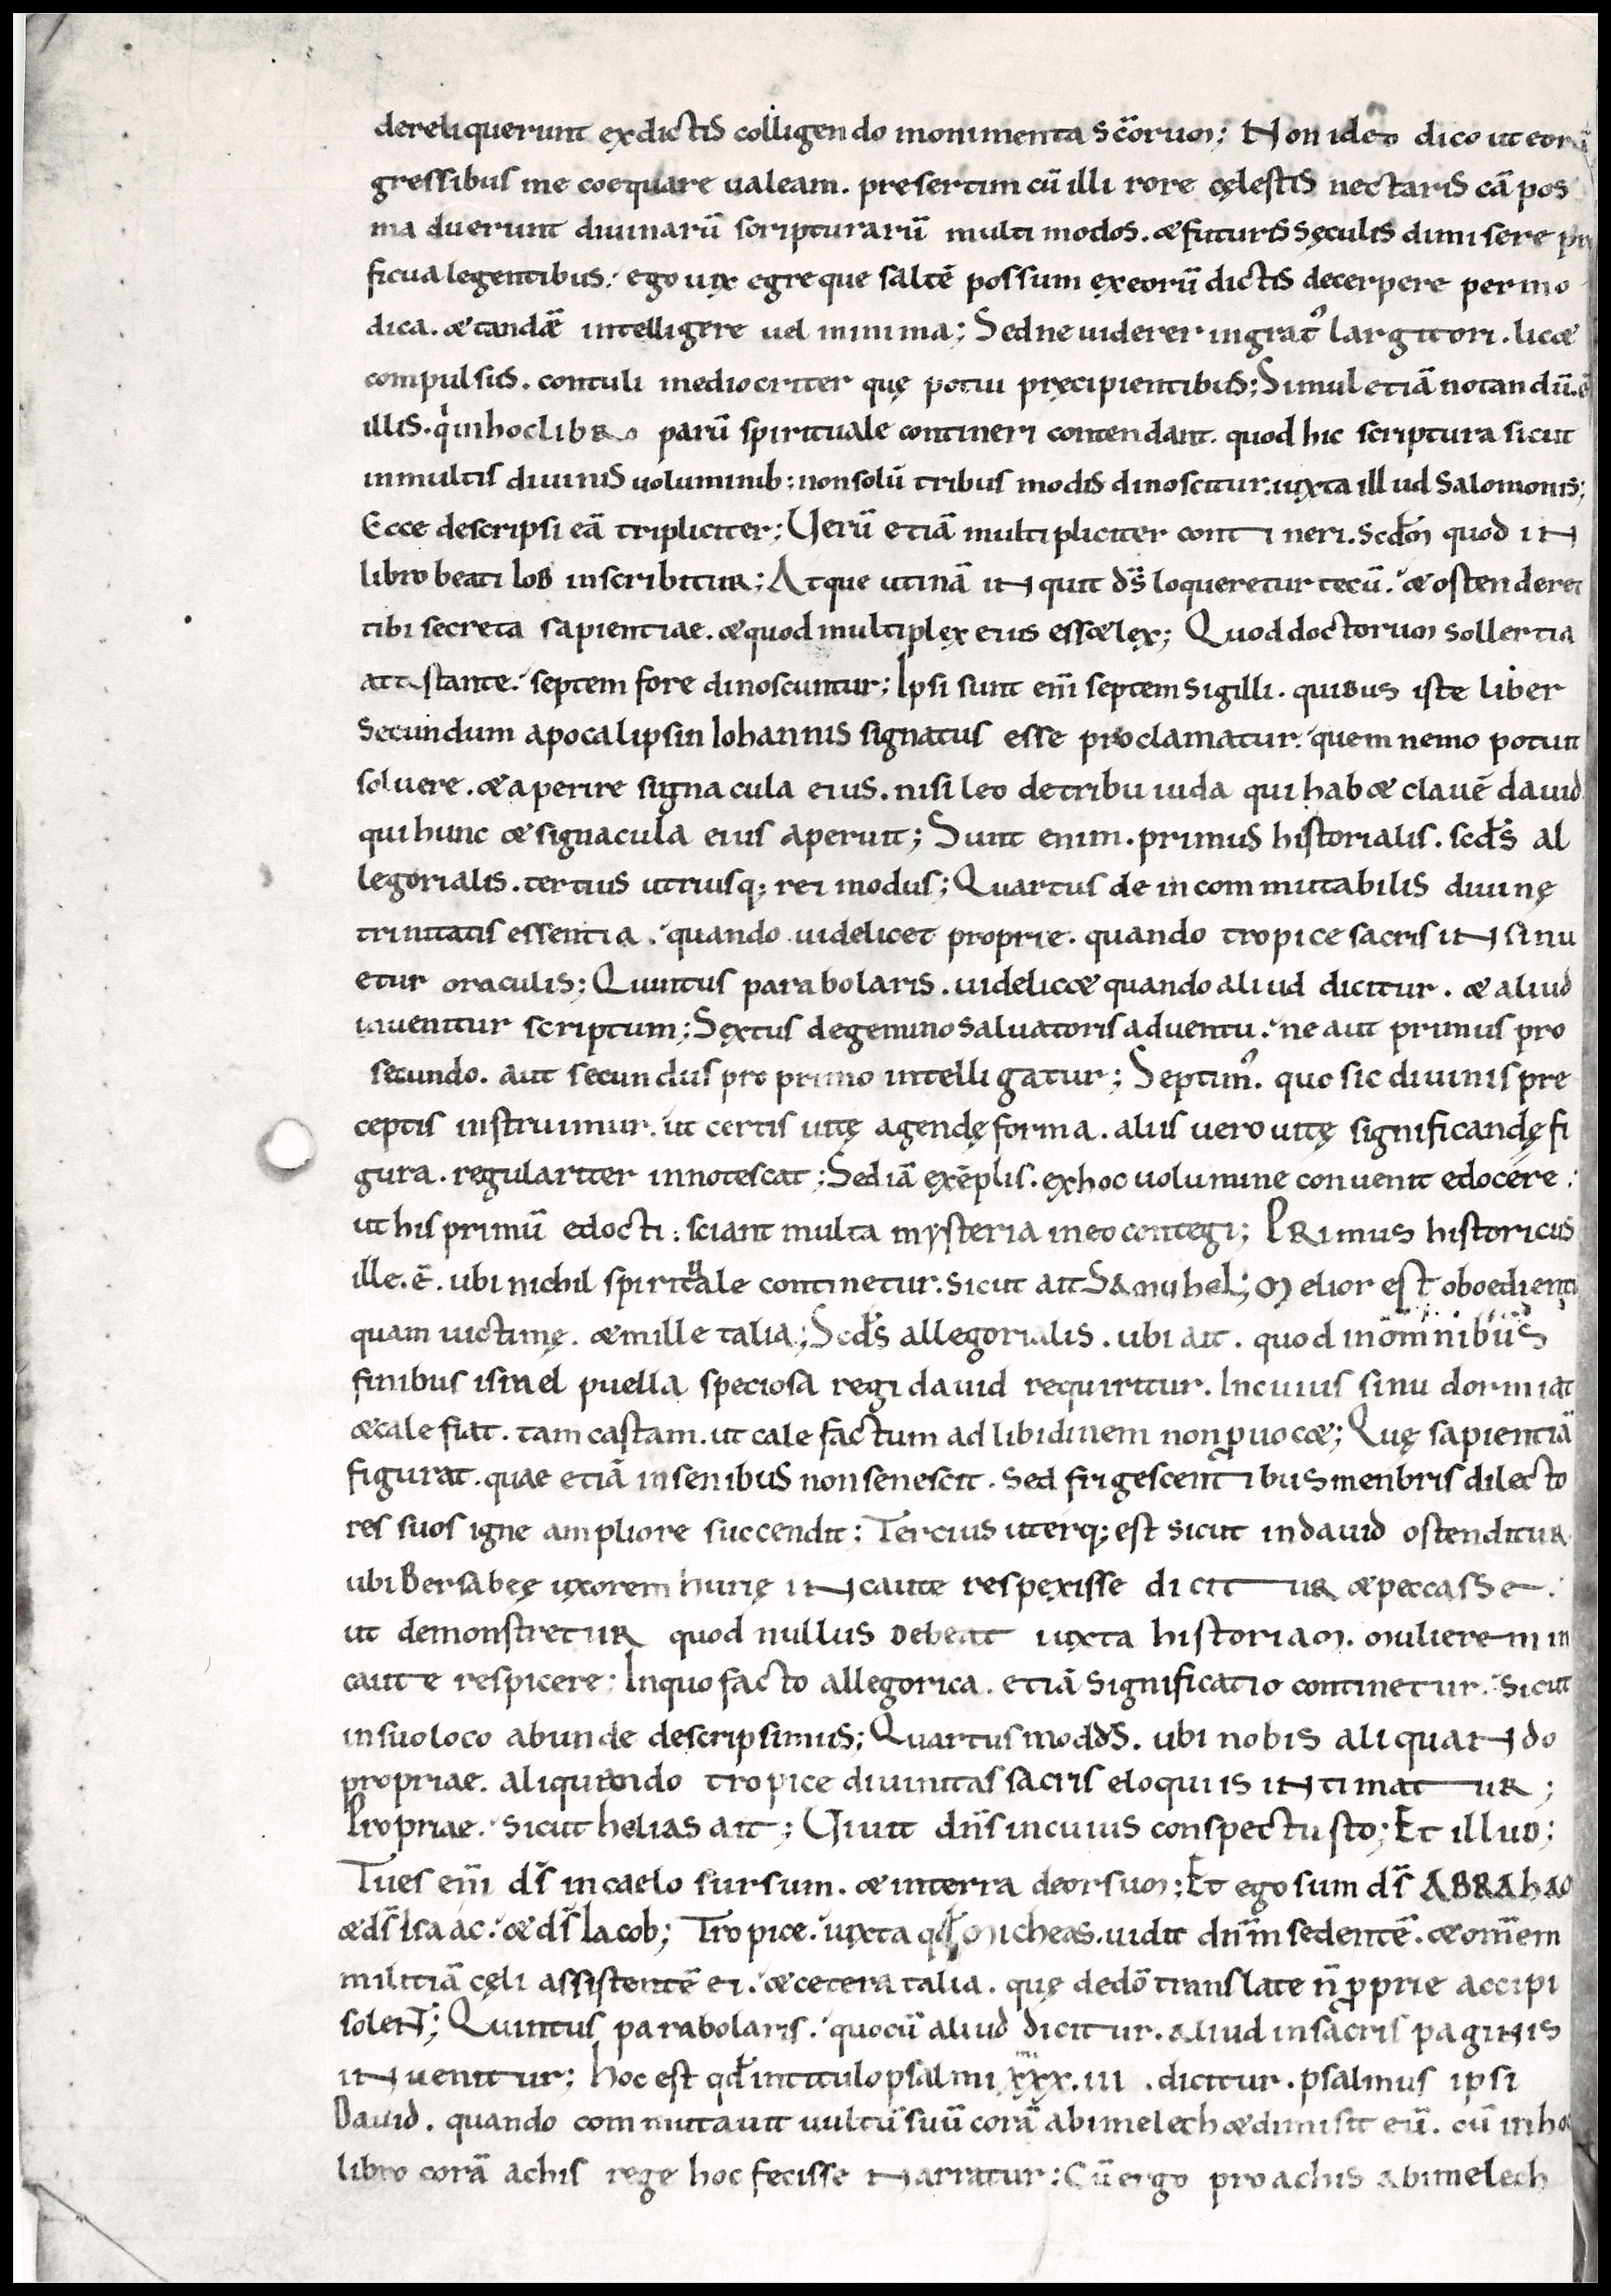 dereliquerunt ex dictis colligendo monimenta scōrum; Non ideo dico ut eorū
gressibus me coequare ualeam. presertim cū illi rore cęlestis nectaris cā pos
ma duerunt diuinarū scripturarū multimodos. & futuris sęculis dimisere
ficua legentibus; ego uix egreque saltē possum ex eorū dictis decerpere permo
dica. & tandē intelligere uel minima; Sed ne uiderer ingrat᾽ largitori. lic&
compulsus. contuli mediocriter quę potui pręcipientibus; Simul etiā notandū. ē
illis. qͥ in hoc libro parū spirituale contineri contendant. quod hic scriptura sicut
in multis diuinis uoluminib; non solū tribus modis dinoscitur. iuxta illud Salomonis;
Ecce descripsi eā tripliciter; Uerū etiā multipliciter contineri. scdm̄ quod in
libro beati Iob inscribitur; Atque utinā inquit d̄s loqueretur tecū. & ostenderet
tibi secreta sapientiae. & quod multiplex eius ess& lex; Quod doctorum sollertia
attestante. septem fore dinoscuntur; Ipsi sunt eni̅ septem sigilli. quibus iste liber
Secundum apocalipsin Iohannis signatus esse proclamatur. quem nemo potuit
soluere. & aperire signacula eius. nisi leo de tribu iuda qui hab& clauē dauid
qui hunc & signacula eius aperuit; Sunt enim. primus historialis. scd̄s al
legorialis. tertius utriusq; rei modus; Quartus de incommutabilis diuinę
trinitatis essentia. quando uidelicet proprie. quando tropice sacris insinu
etur oraculis; Quintus parabolaris. uidelic& quando aliud dicitur. & aliud
inuenitur scriptum; Sextus de gemino saluatoris aduentu. ne aut primus pro
secundo. aut secundus pro primo intelligatur; Septim᾽. quo sic diuinis pre
ceptis instruimur. ut certis uitę agendę forma. aliis uero uitę significandę fi
gura. regulariter innotescat; Sed iā exēplis. ex hoc uolumine conuenit edocere;
ut his primū edocti; sciant multa mysteria in eo contegi; Primus historicus
ille. ē. ubi nichil spirituale continetur. sicut ait Samuhel; Melior est oboedientia
quam uictimę. & mille talia; Scd̄s allegorialis. ubi ait. quod in omnibus
finibus israel puella speciosa regi dauid requiritur. In cuius sinu dormiat
& calefiat. tam castam. ut calefactum ad libidinem non ꝓuoc&; Quę sapientiā
figurat. quae etiā in senibus non senescit. Sed frigescentibus menbris dilecto
res suos igne ampliore succendit; Tercius uterq; est sicut in dauid ostenditur
ubi Bersabeę uxorem hurię incaute respexisse dicitur & peccasse.
ut demonstretur quod nullus debeat iuxta historiam. mulierem in
caute respicere; In quo facto allegorica. etiā significatio continetur. sicut
in suo loco abunde descripsimus; Quartus modus. ubi nobis aliquando
propriae. aliquando tropice diuinitas sacris eloquiis intimatur;
Propriae. sicut helias ait; Uiuit dn̄s in cuius conspectu sto; Et illud;
Tu es eni̅ d̄s in caelo sursum. & in terra deorsum; Et ego sum d̄s ABRAham
& d̄s Isaac. & d̄s Iacob; Tropice. iuxta qđ Micheas. uidit dn̄m sedentē. & omnem
militiā cęli assistentē ei. & cetera talia. quę de dō translate n̄ ꝓprie accipi
solent; Quintus parabolaris. quo cū aliud dicitur. aliud in sacris paginis
inuenitur; hoc est qđ in titulo psalmi xxx.iii. dicitur. psalmus ipsi
Dauid. quando commutauit uultū suū corā abimelech & dimisit eū. cū in hoc
libro corā achis rege hoc fecisse narratur; Cū ergo pro achis abimelech